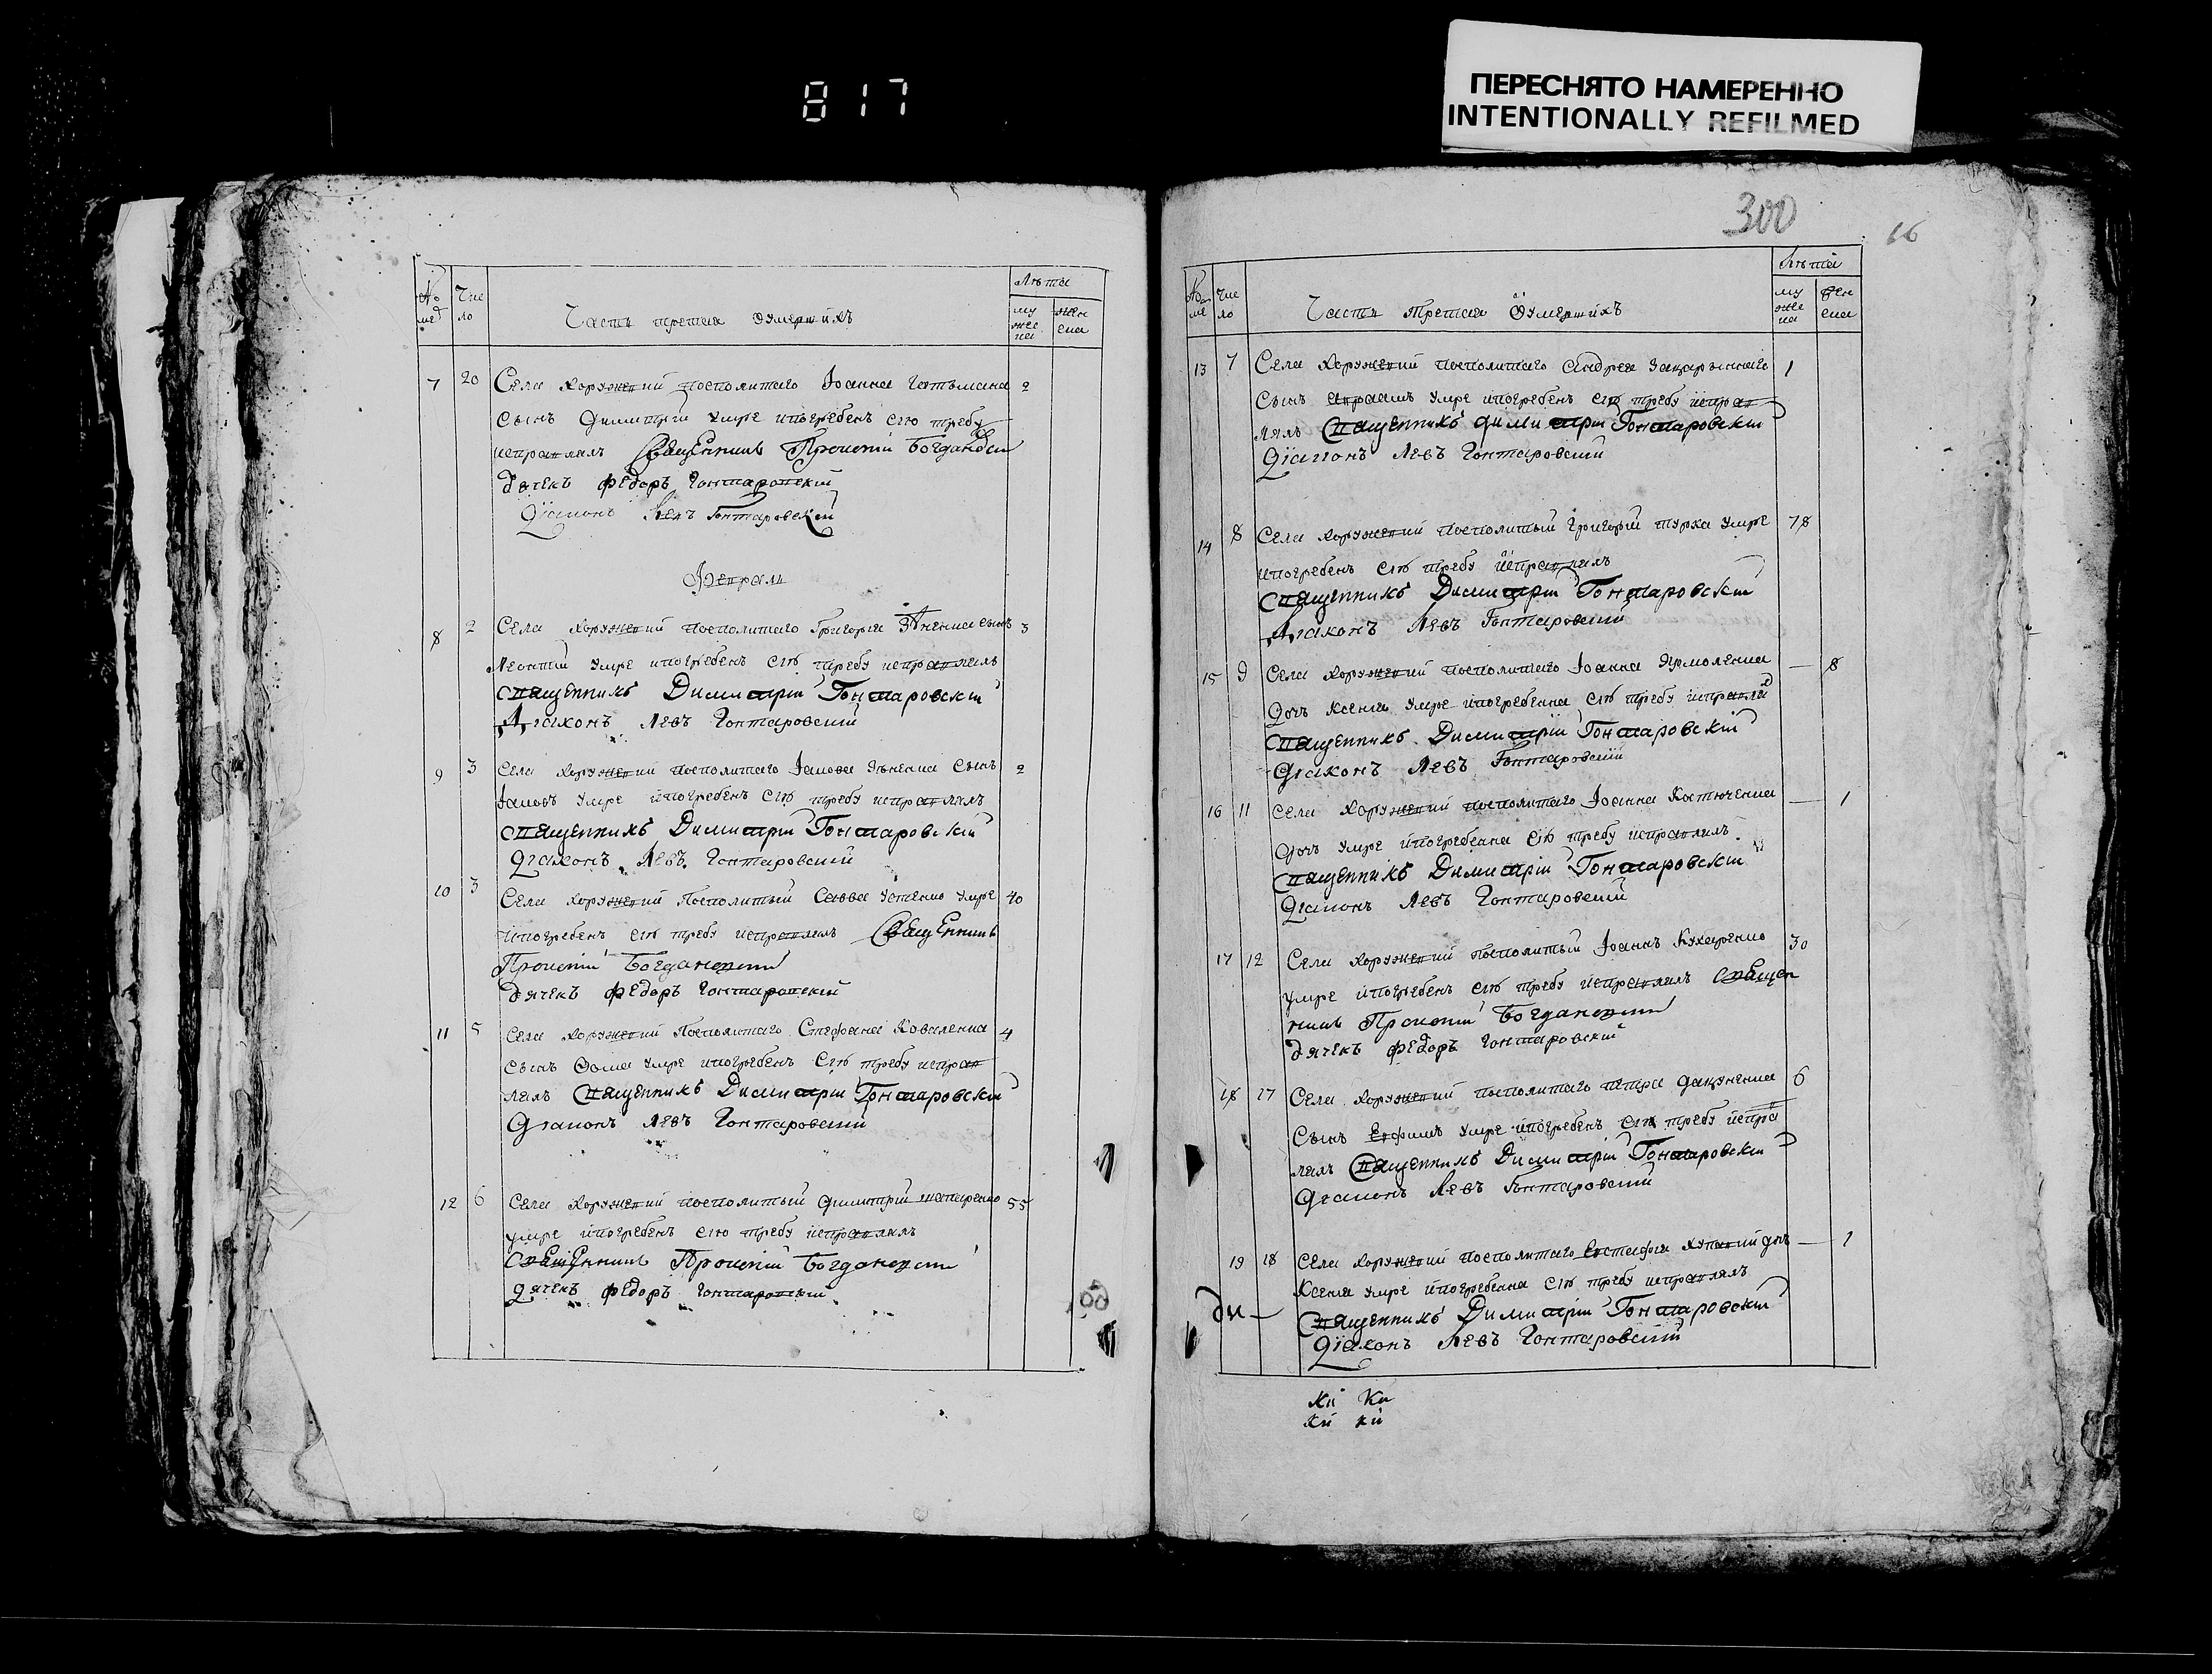 817
ПЕРЕСНЯТО НАМЕРЕННО
INTENTIONALLY REFILMED
300
16
Но
мер
Чис
ло
Часть третия оумершихъ
Лѣта
му
жес
ка
жен
ска
7 20 Села Хоружевки посполитаго Іоанна Гетьмана 2
сынъ Димитрій умре и погребенъ сію требу
исправлялъ Священникъ Прокопій Богдановскій
дячекъ Федоръ Гонтаровскій
Діаконъ Левъ Гонтаровскій
Февраля
8 2 Села Хоружевки посполитаго Григорія сынъ 3
Леонтій умре и погребенъ сію требу исправлялъ
священникъ Димитрій Гонтаровскій
Діаконъ Левъ Гонтаровскій
9 3 Села Хоружевки посполитаго Іакова сынъ 2
Іаковъ умре и погребенъ сію требу исправлялъ
священникъ Димитрій Гонтаровскій
Діаконъ Левъ Гонтаровскій
10 3 Села Хоружевки Посполитый Савва Устенко умре 40
и погребенъ сію требу исправлялъ Священникъ
Прокопій Богдановскій
дячекъ Федоръ Гонтаровскій
11 5 Села Хоружевки Посполитаго Стефана Коваленка 4
сынъ Фома умре и погребенъ сію требу исправ
лялъ священникъ Димитрій Гонтаровскій
Діаконъ Левъ Гонтаровскій
12 6 Села Хоружевки посполитый Димитрій 55
умре и погребенъ сію требу исправлялъ
Священникъ Прокопій Богдановскій
дячекъ Федоръ Гонтаровскій
Но
ме
Чис
ло
Часть Третая Оумершихъ
Лѣта
му
жес
ка
жен
ска
13 7 Села Хоружевки посполитаго Андрея 1
сынъ умре и погребенъ сію требу исправ
лялъ Священникъ Димитрій Гонтаровскій
Діаконъ Левъ Гонтаровскій
14 8 Села Хоружевки посполитый Григорій турка умре 78
и погребенъ сію требу исправлялъ
священникъ Димитрій Гонтаровскій
Діаконъ Левъ Гонтаровскій
15 9 Села Хоружевки посполитаго Іоанна Ярмоленка — 8
дочъ Ксенія умре и погребенна сію требу исправля
священникъ Димитрій Гонтаровскій
Діаконъ Левъ Гонтаровскій
16 11 Села Хоружевки посполитаго Іоанна Костюченка — 1
дочъ умре и погребенна сію требу исправлялъ
священникъ Димитрій Гонтаровскій
Діаконъ Левъ Гонтаровскій
17 12 Села Хоружевки посполитый Іоаннъ Кухаренко 30
умре и погребенъ сію требу исправлялъ священ
никъ Прокопій Богдановскій
дячекъ Федоръ Гонтаровскій
18 17 Села Хоружевки посполитаго петра 6
сынъ Евфимъ умре и погребенъ сію требу испра
лялъ Священникъ Димитрій Гонтаровскій
Діаконъ Левъ Гонтаровскій
19 18 Села Хоружевки посполитаго Евстафія дочъ — 1
Ксенія умре и погребенна сію требу исправлялъ
Священникъ Димитрій Гонтаровскій
Діаконъ Левъ Гонтаровскій
ди—